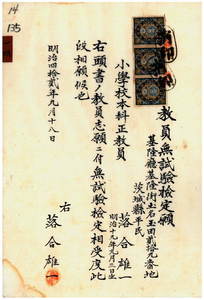 14
135
教員無試驗檢定願
基隆廳基隆街土名玉田貳拾九番地
茨城縣平民
落合雄一
明治十九年九月三日生
小學校本科正教員
右頭書ノ教員志願ニ付無試驗檢定相受度此
段相願候也
明治四拾貳年九月十八日
右
落合雄一